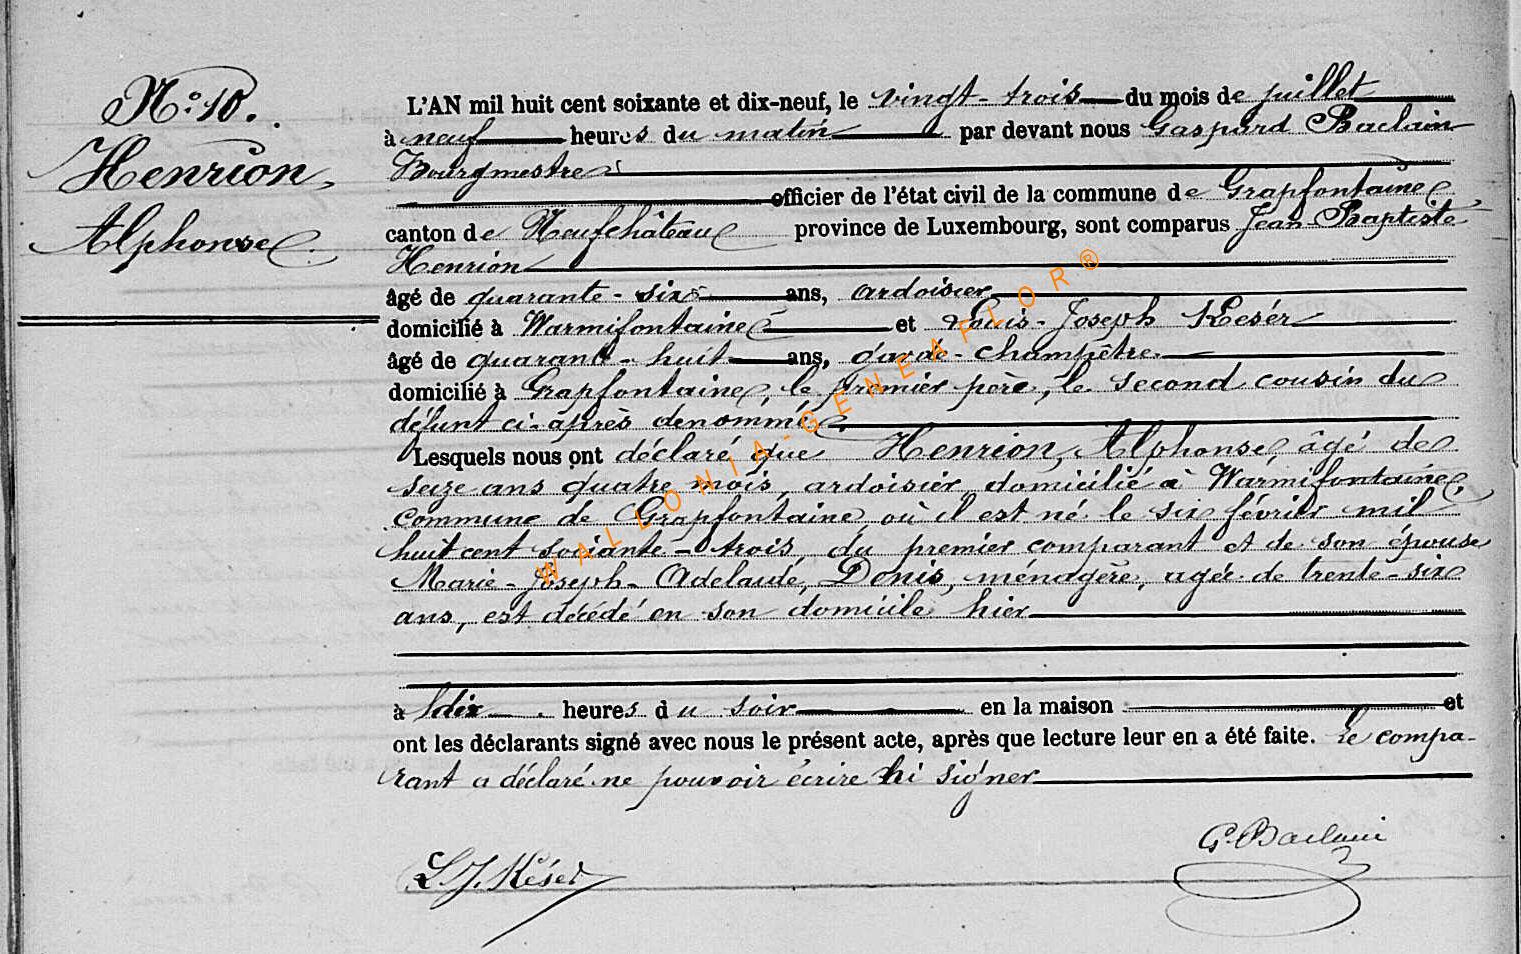 N° 10.
Henrion,
Alphonse.
L'AN mil huit cent soixante et dix-neuf, le vingt-trois du mois de juillet
à neuf heures du matin par devant nous Gaspard Baclain
Bourgmestre
officier de l'état civil de la commune de Grapfontaine
canton de Neufchâteau province de Luxembourg, sont comparus Jean-Baptiste
Henrion
âgé de quarante-six ans, ardoisier
domicilié à Warmifontaine et Louis-Joseph Késer
âgé de quarante-huit ans, garde-champêtre
domicilié à Grapfontaine, le premier père, le second cousin du
défunt ci-après denommé.
Lesquels nous ont déclaré que Henrion, Alphonse, âgé de
seize ans quatre mois, ardoisier, domicilié à Warmifontaine,
commune de Grapfontaine, où il est né le six février mil
huit cent soixante-trois, du premier comparant et de son épouse
Marie-Joseph-Adelaïde, Denis, ménagère, agée de trente-six
ans, est décédé en son domicile hier
à dix heures du soir en la maison et
ont les déclarants signé avec nous le présent acte, après que lecture leur en a été faite. Le compa-
rant a déclaré ne pouvoir écrire ni signer
G. Baclain
L. J. Késer
WALLONIA-GENEAFLOR®